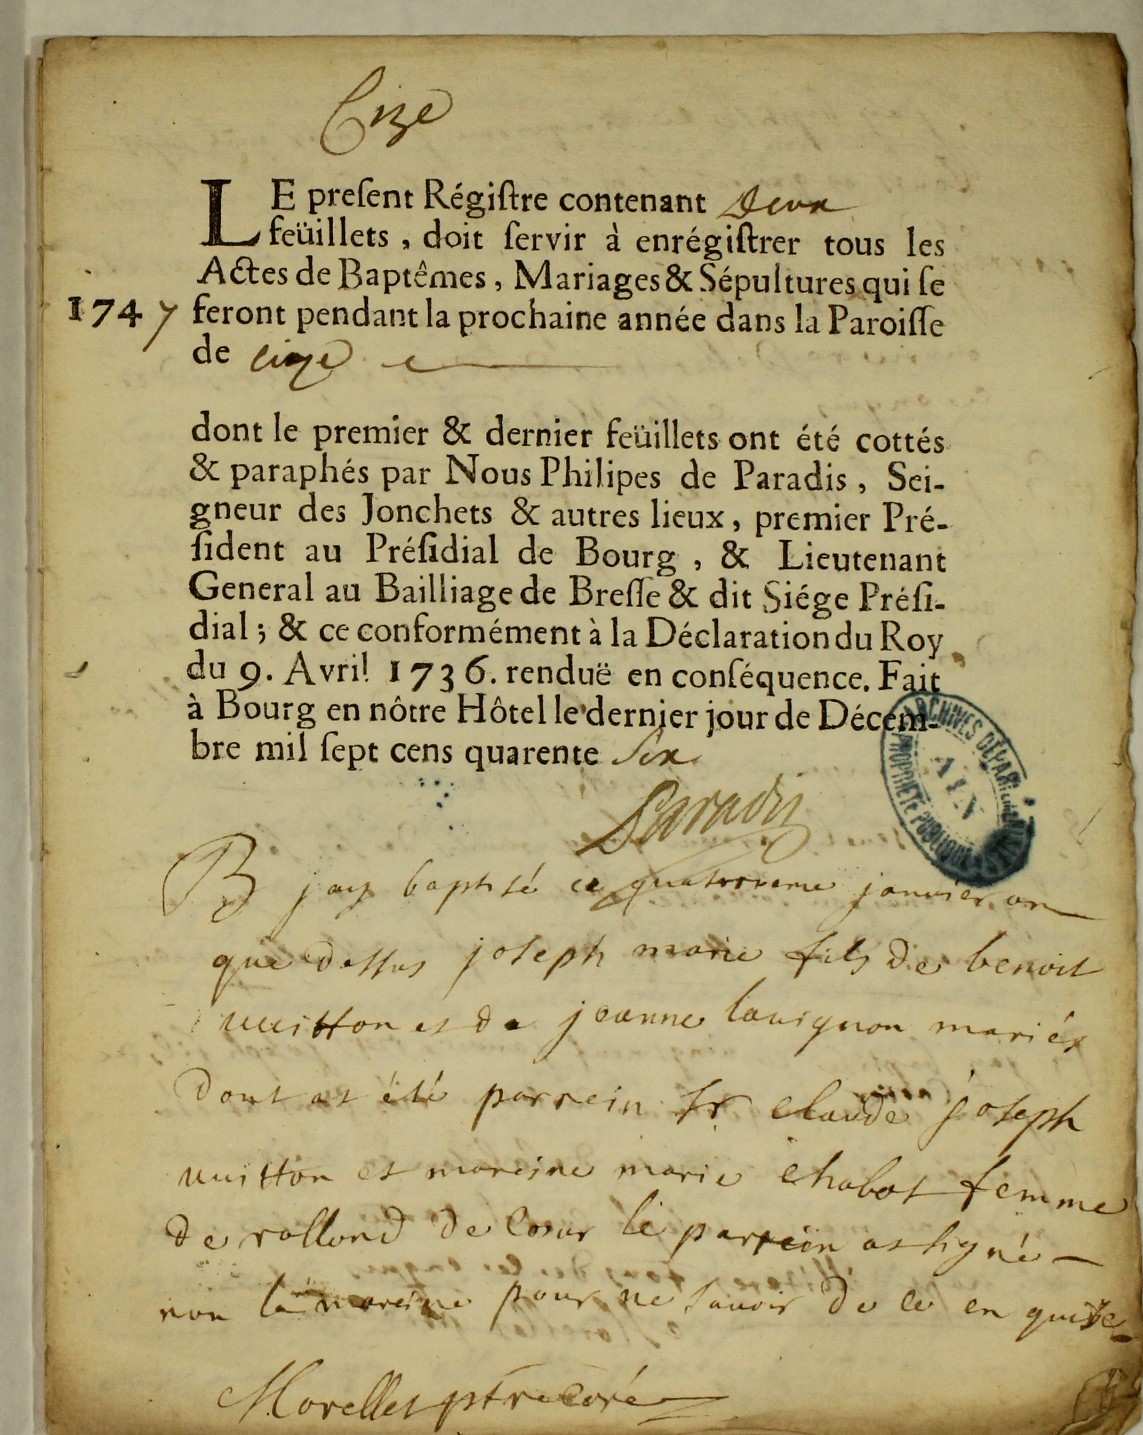 Cize
LE preſent Régiſtre contenant Deux
feüillets, doit ſervir à enrégiſtrer tous les
Actes de Baptêmes, Mariages & Sépultures qui ſe
1747 feront pendant la prochaine année dans la Paroiſſe
de Cize
dont le premier & dernier feüillets ont été cottés
& paraphés par Nous Philipes de Paradis, Sei-
gneur des Jonchets & autres lieux, premier Pré-
ſident au Préſidial de Bourg, & Lieutenant
General au Bailliage de Breſſe & dit Siége Préſi-
dial; & ce conformément à la Déclaration du Roy
du 9. Avril 1736. renduë en conſéquence. Fait
à Bourg en nôtre Hôtel le dernier jour de Décem-
bre mil ſept cens quarente Six
ARCHIVES DÉPART
AIN
PROPRIÉTÉ PUBLIQUE
Paradis
B jay baptisé ce quatorzieme janvier an
que dessus joseph marie fils de benoit
vuitton et de jeanne lauignon mariés
dont at été parrein Sr claude joseph
vuitton et mareine marie chabot femme
de rollond de Coeur le parrein at signé
non la mareine pour ne savoir de ce en quise
Morellet ptre curé